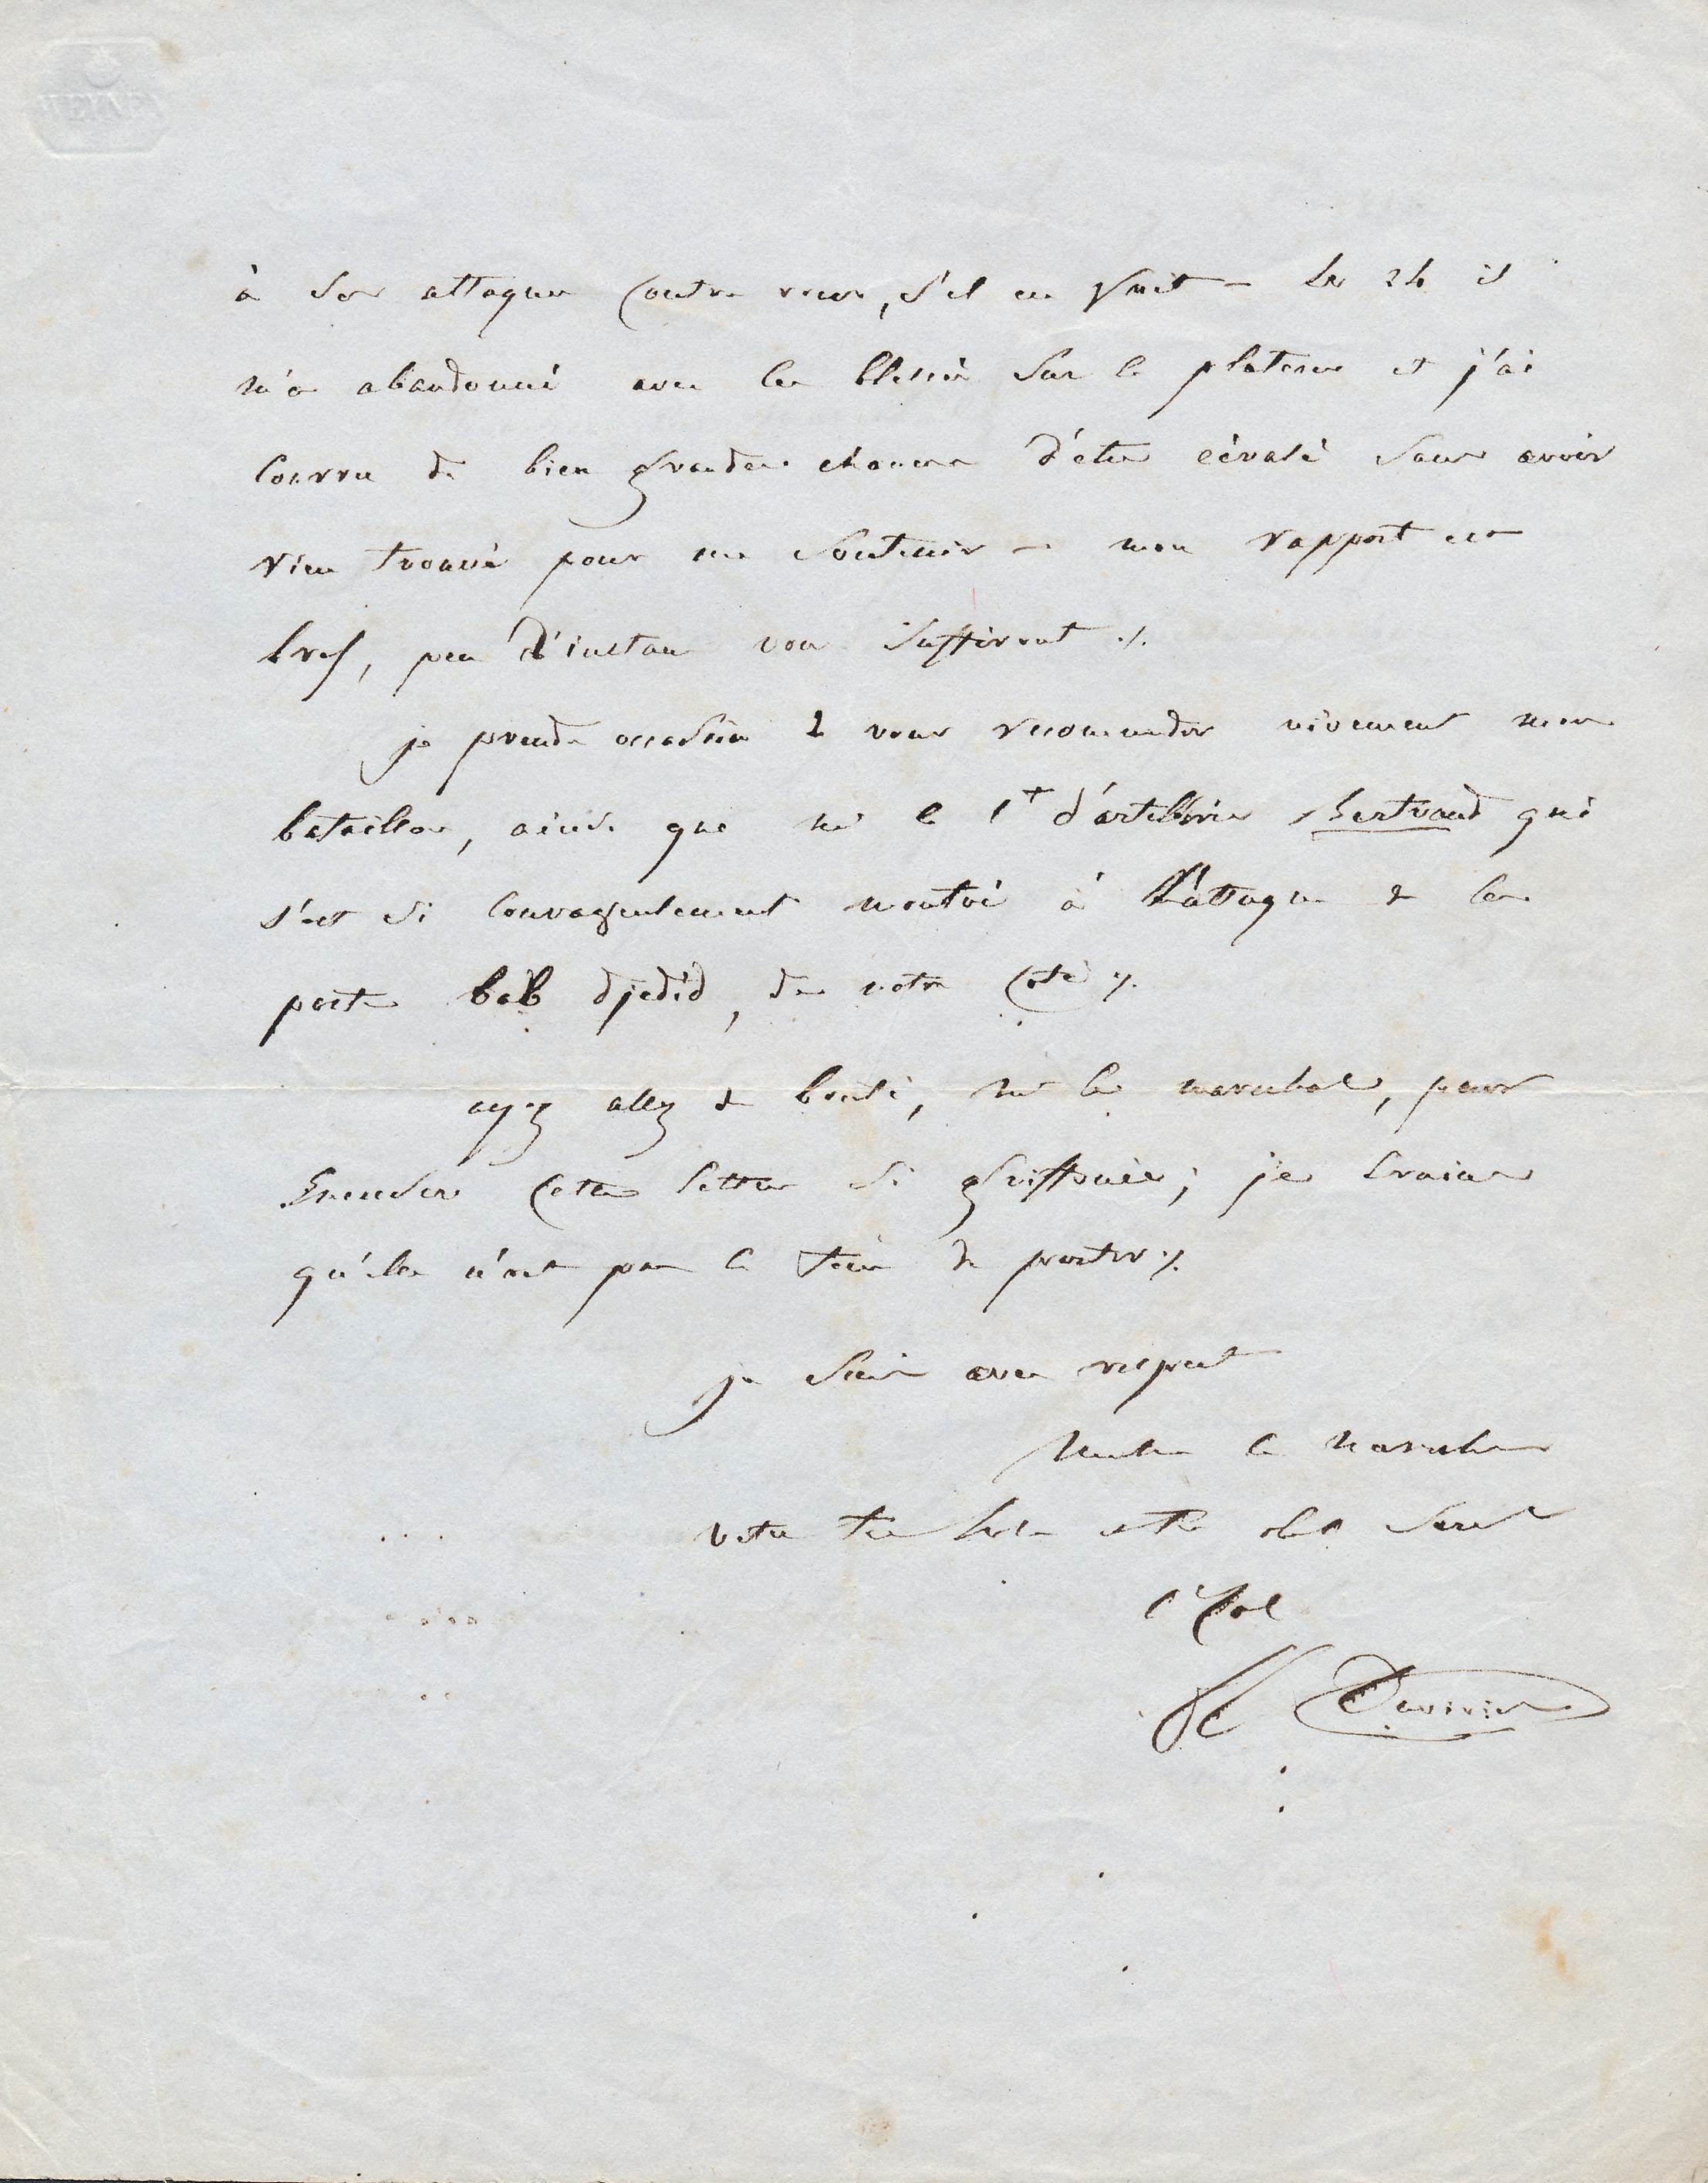 à ses attaques contre vous, s'il en fait – Le 24 il
m'a abandonné avec les blessés sur le plateau et j'ai
courru de bien grandes chances d'être écrasé sans avoir
rien trouvé pour me soutenir – mon rapport est
bref, peu d'instans vous suffiront ./.
je prends occasion de vous recommander vivement mon
bataillon, ainsi que mr le lt d'artillerie Bertrand qui
s'est si courageusement montré à l'attaque de la
porte bab djedid, de notre coté ./.
ayez assez de bonté, mr le marechal, pour
excuser cette lettre si griffonée; je crains
qu'elle n'ait pas le tems de partir ./.
je suis avec respect
le marechal
votre très et très obt servt
Duvivier